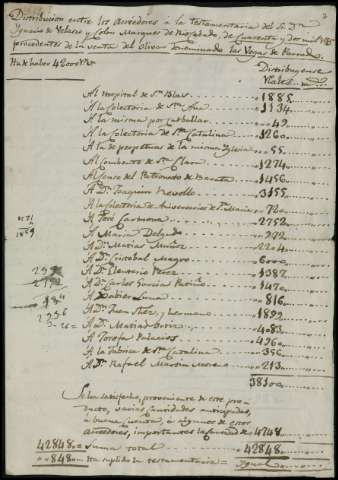 Distribucion entre los acreedores à la testamentaria del S. Dn.
Ignacio de Velasco y Colon Marques de Norzabado, de Cuarenta y dos mil rs.
procedentes de la venta del olivar denominado las Vegas de
Ha de haber 42000 rs.
Distribuyense
Al Hospital de Sn. Blas 1885
A la Colecturia de Sta. Ana 1134
A la misma por 49
A la Colecturia de Sta. Catalina 1260
A la de perpetuas de la misma Yglesia 55
Al Combento de Sta. Clara 1274
Al Censo del Patronato de 1456
A D. Joaquin 3155
A la Colecturia de Aniversarios de Sta. Maria 720
A José Carmona 2752
A Maria Delgado 972
A Dn. Matias Muñoz 2204
A Dn. Cristobal Magro 6000
A Dn. Eleuterio Perez 1387
A Dn. Carlos Garcia 1470
A Pablo Luna 816
A Dn. Juan y hermano 1899
A Dn. Matias 4083
A Josefa Palacios 4960
A la fabrica de Sta. Catalina 356
A Dn. Rafael Martin Moreno 213
38100
Se ha satisfecho, proveniente de este pro-
ducto, varias cantidades anticipadas,
à buena cuenta, à algunos de estos
acreedores, importantes la cantidad de 4748
42848 Suma total 42848
848 Ha suplido la testamentaria Ygual